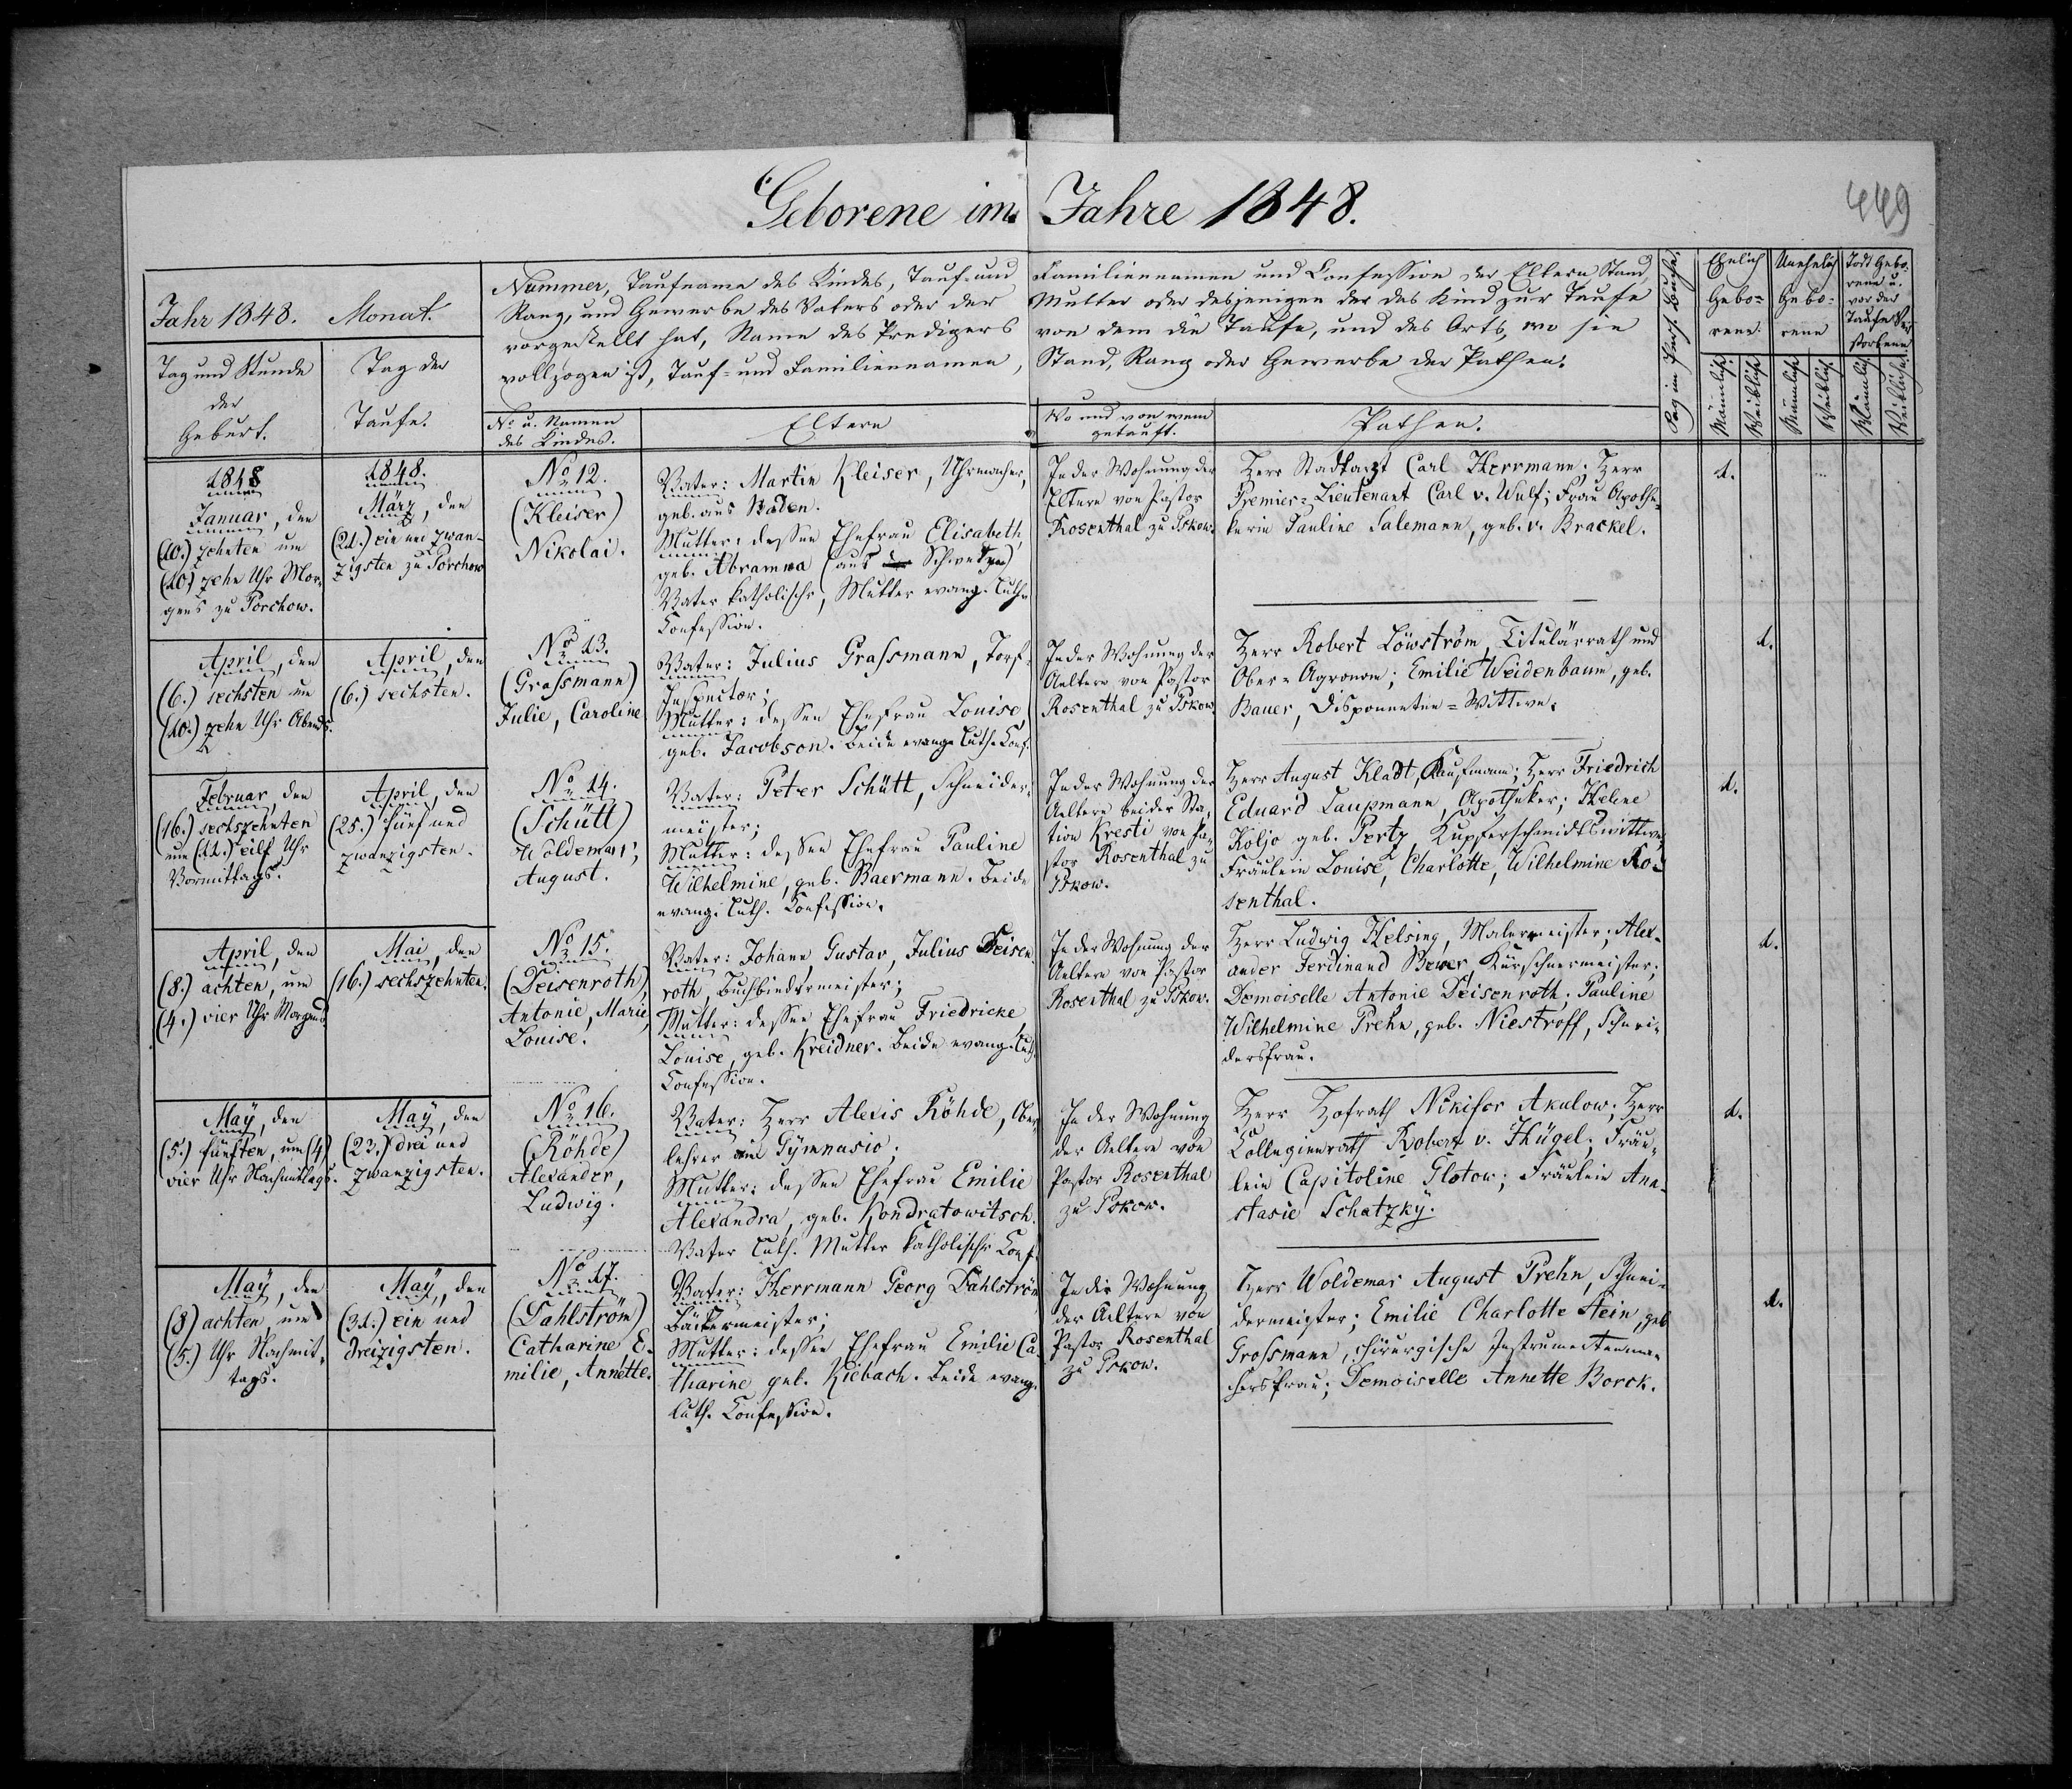 Geborene im Jahre 1848.
449
Jahr 1848. Monat.
Tag und Stunde
der
Geburt.
Tag der
Taufe.
Nummer, Taufname des Kindes, Tauf- und Familiennamen und Confession der Eltern Stand,
Rang, und Gewerbe des Vaters oder der Mutter oder desjenigen der das Kind zur Taufe
vorgestellt hat, Name des Predigers von dem die Taufe, und des Orts, wo sie
vollzogen ist, Tauf- und Familiennamen, Stand, Rang oder Gewerbe der Pathen.
No u. Namen
des Kindes.
Eltern
Wo und von wem
getauft.
Pathen.
Ehelich
Gebo-
rene.
Unehelich
Gebo-
rene
Todt Gebo-
rene u.
vor der
Taufe Ver-
storbene
Männlich.
Weiblich
Männlich
Weiblich
Männlich
Weiblich
1848
Januar, den
(10.) zehnten um
(10.) zehn Uhr Mor-
gens zu Porchow.
1848.
März, den
(21.) ein und zwan-
zigsten zu Porchow
No 12.
(Kleiser)
Nikolai.
Vater: Martin Kleiser, Uhrmacher,
geb. aus Baden.
Mutter: dessen Ehefrau Elisabeth,
geb. Abramwa (aus Schweden)
Vater katholischer, Mutter evang. Luth.
Confession.
In der Wohnung der
Eltern von Pastor
Rosenthal zu Pskow.
Herr Stadtarzt Carl Herrmann; Herr
Premier-Lieutenant Carl v. Wulf; Frau Apothe-
kerin Pauline Salemann, geb. v. Brackel.
1.
April, den
(6.) sechsten um
(10.) zehn Uhr Abends.
April, den
(6.) sechsten.
No 13.
(Grassmann)
Julie, Caroline
Vater: Julius Grassmann, Torf-
Inspector;
Mutter: dessen Ehefrau Louise,
geb. Jacobson. Beide evang. Luth. Conf.
In der Wohnung der
Aeltern von Pastor
Rosenthal zu Pskow.
Herr Robert Löwström, Titulärrath und
Ober-Agronom; Emilie Weidenbaum, geb.
Bauer, Disponenten-Wittwe.
1.
Februar, den
(16.) sechszehnten
um (11.) eilf Uhr
Vormittags.
April, den
(25.) fünf und
zwanzigsten.
No 14.
(Schütt)
Woldemar,
August.
Vater: Peter Schütt, Schneider-
meister;
Mutter: dessen Ehefrau Pauline
Wilhelmine, geb. Baermann. Beide
evang. Luth. Confession.
In der Wohnung der
Aeltern bei der Sta-
tion Kresti von Pa-
stor Rosenthal zu
Pskow.
Herr August Kladt, Kaufmann; Herr Friedrich
Eduard Laupmann, Apotheker; Helene
Koljo geb. Pertz Kupferschmidtswittwe;
Fräulein Louise, Charlotte, Wilhelmine Ro-
senthal.
1.
April, den
(8.) achten, um
(4.) vier Uhr Morgens
Mai, den
(16.) sechszehnten.
No 15.
(Deisenroth),
Antonie, Marie,
Louise.
Vater: Johann, Gustav, Julius Deisen-
roth, Buchbindermeister;
Mutter: dessen Ehefrau Friedricke
Louise, geb. Kreidner. Beide evang. Luth.
Confession.
In der Wohnung der
Aeltern von Pastor
Rosenthal zu Pskow.
Herr Ludwig Helsing, Malermeister; Alex-
ander Ferdinand Bewer, Kürschnermeister;
Demoiselle Antonie Deisenroth; Pauline
Wilhelmine Prehn, geb. Niestroff, Schnei-
dersfrau.
1.
May, den
(5.) fünften, um (4)
vier Uhr Nachmittags.
May, den
(23.) drei und
zwanzigsten.
No 16.
(Röhde)
Alexander,
Ludwig.
Vater: Herr Alexis Röhde, Ober-
lehrer am Gymnasio;
Mutter: dessen Ehefrau Emilie
Alexandra, geb. Kondratowitsch.
Vater Luth. Mutter katholischer Conf.
In der Wohnung
der Aeltern von
Pastor Rosenthal
zu Pskow.
Herr Hofrath Nikifor Akulow; Herr
Collegienrath Robert v. Hügel; Fräu-
lein Capitoline Glotow; Fräulein Ana-
stasie Schatzky.
1.
May, den
(8) achten, um
(5.) Uhr Nachmit-
tags.
May, den
(31.) ein und
dreizigsten.
No 17.
(Dahlström)
Catharine E-
milie, Annette.
Vater: Herrmann Georg Dahlström
Bäckermeister;
Mutter: dessen Ehefrau Emilie Ca-
tharine geb. Kiebach. Beide evang.
Luth. Confession.
In der Wohnung
der Aeltern von
Pastor Rosenthal
zu Pskow.
Herr Woldemar August Prehn, Schnei-
dermeister; Emilie Charlotte Stein, geb
Grossmann, chirurgische Instrumentenma-
chersfrau; Demoiselle Annette Borck.
1.